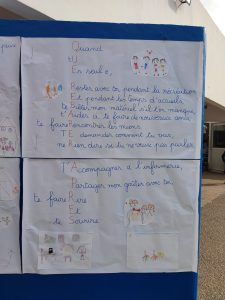 Quand
tU
En seul e,
Rester avec toi pendant la récréation
Et pendant les temps d'accueils,
Prêter mon matériel s'il t'en manque,
t'Aider à te faire de nouveaux amis
te faire Rencontrer les miens
Te demander comment tu vas,
ne Rien dire si tu ne veux pas parler.
T'Accompagner à l'infirmerie,
Partager mon goûter avec toi,
te faire Rire
Et
te Sourire
pas